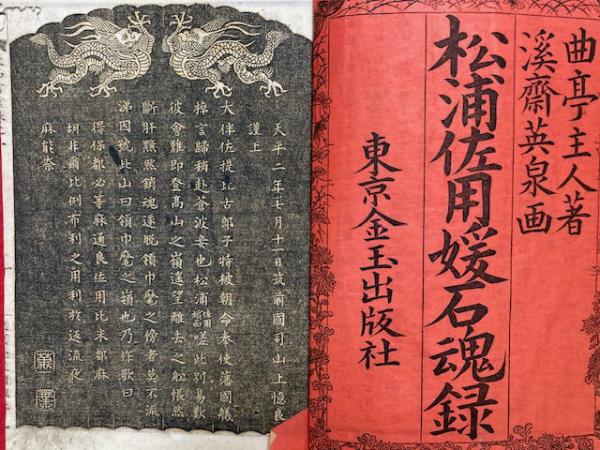 曲亭主人著
溪齋英泉画
松浦佐用媛石魂録
東京金玉出版社
天平二年七月十一日筑前國司山上憶良
謹上
大伴佐提比古郎子特被朝命奉使藩國艤
棹言歸稍赴蒼波妾也松浦佐用嬪面嗟此別易歎
彼會難即登高山之嶺遙望離去之舩悵然
斷肝黯然銷魂遂脱領巾麾之傍者莫不流
涕因號此山曰領巾麾之嶺也乃作歌曰
得保都必等麻通良佐用比米都麻
胡非爾比例布利之用利於返流夜
麻能奈